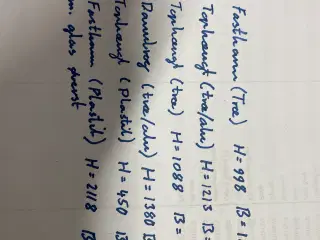 Fastkarm (Træ) H=998 B=1
Tophængt (træ/alu) H=1213 B=
Tophængt (træ) H=1088 B=
Dannebrog (træ/alu) H=1380 B
Tophængt (Plastik) H=450 B
Fastkarm (Plastik) H=2118 B
glas